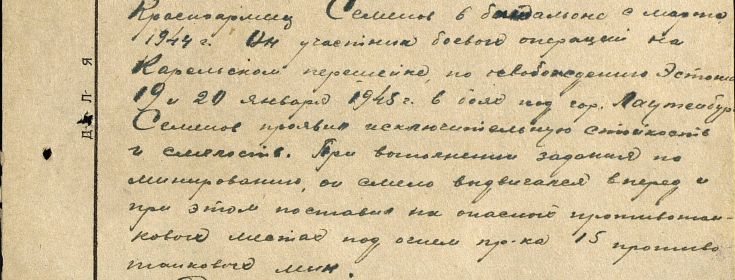 Красноармеец Семенов в батальоне с марта
1944 г. Он участник боевых операций на
Карельском перешейке, по освобождению Эстонии
19 и 20 января 1945 г. в боях под гор. Лаутенбург
Семенов проявил исключительную стойкость
и смелость. При выполнении задания по
минированию, он смело выдвигался вперед и
при этом поставил на опасных противотан-
ковых местах под огнем пр-ка 15 противо
танковых мин.
ДЛЯ